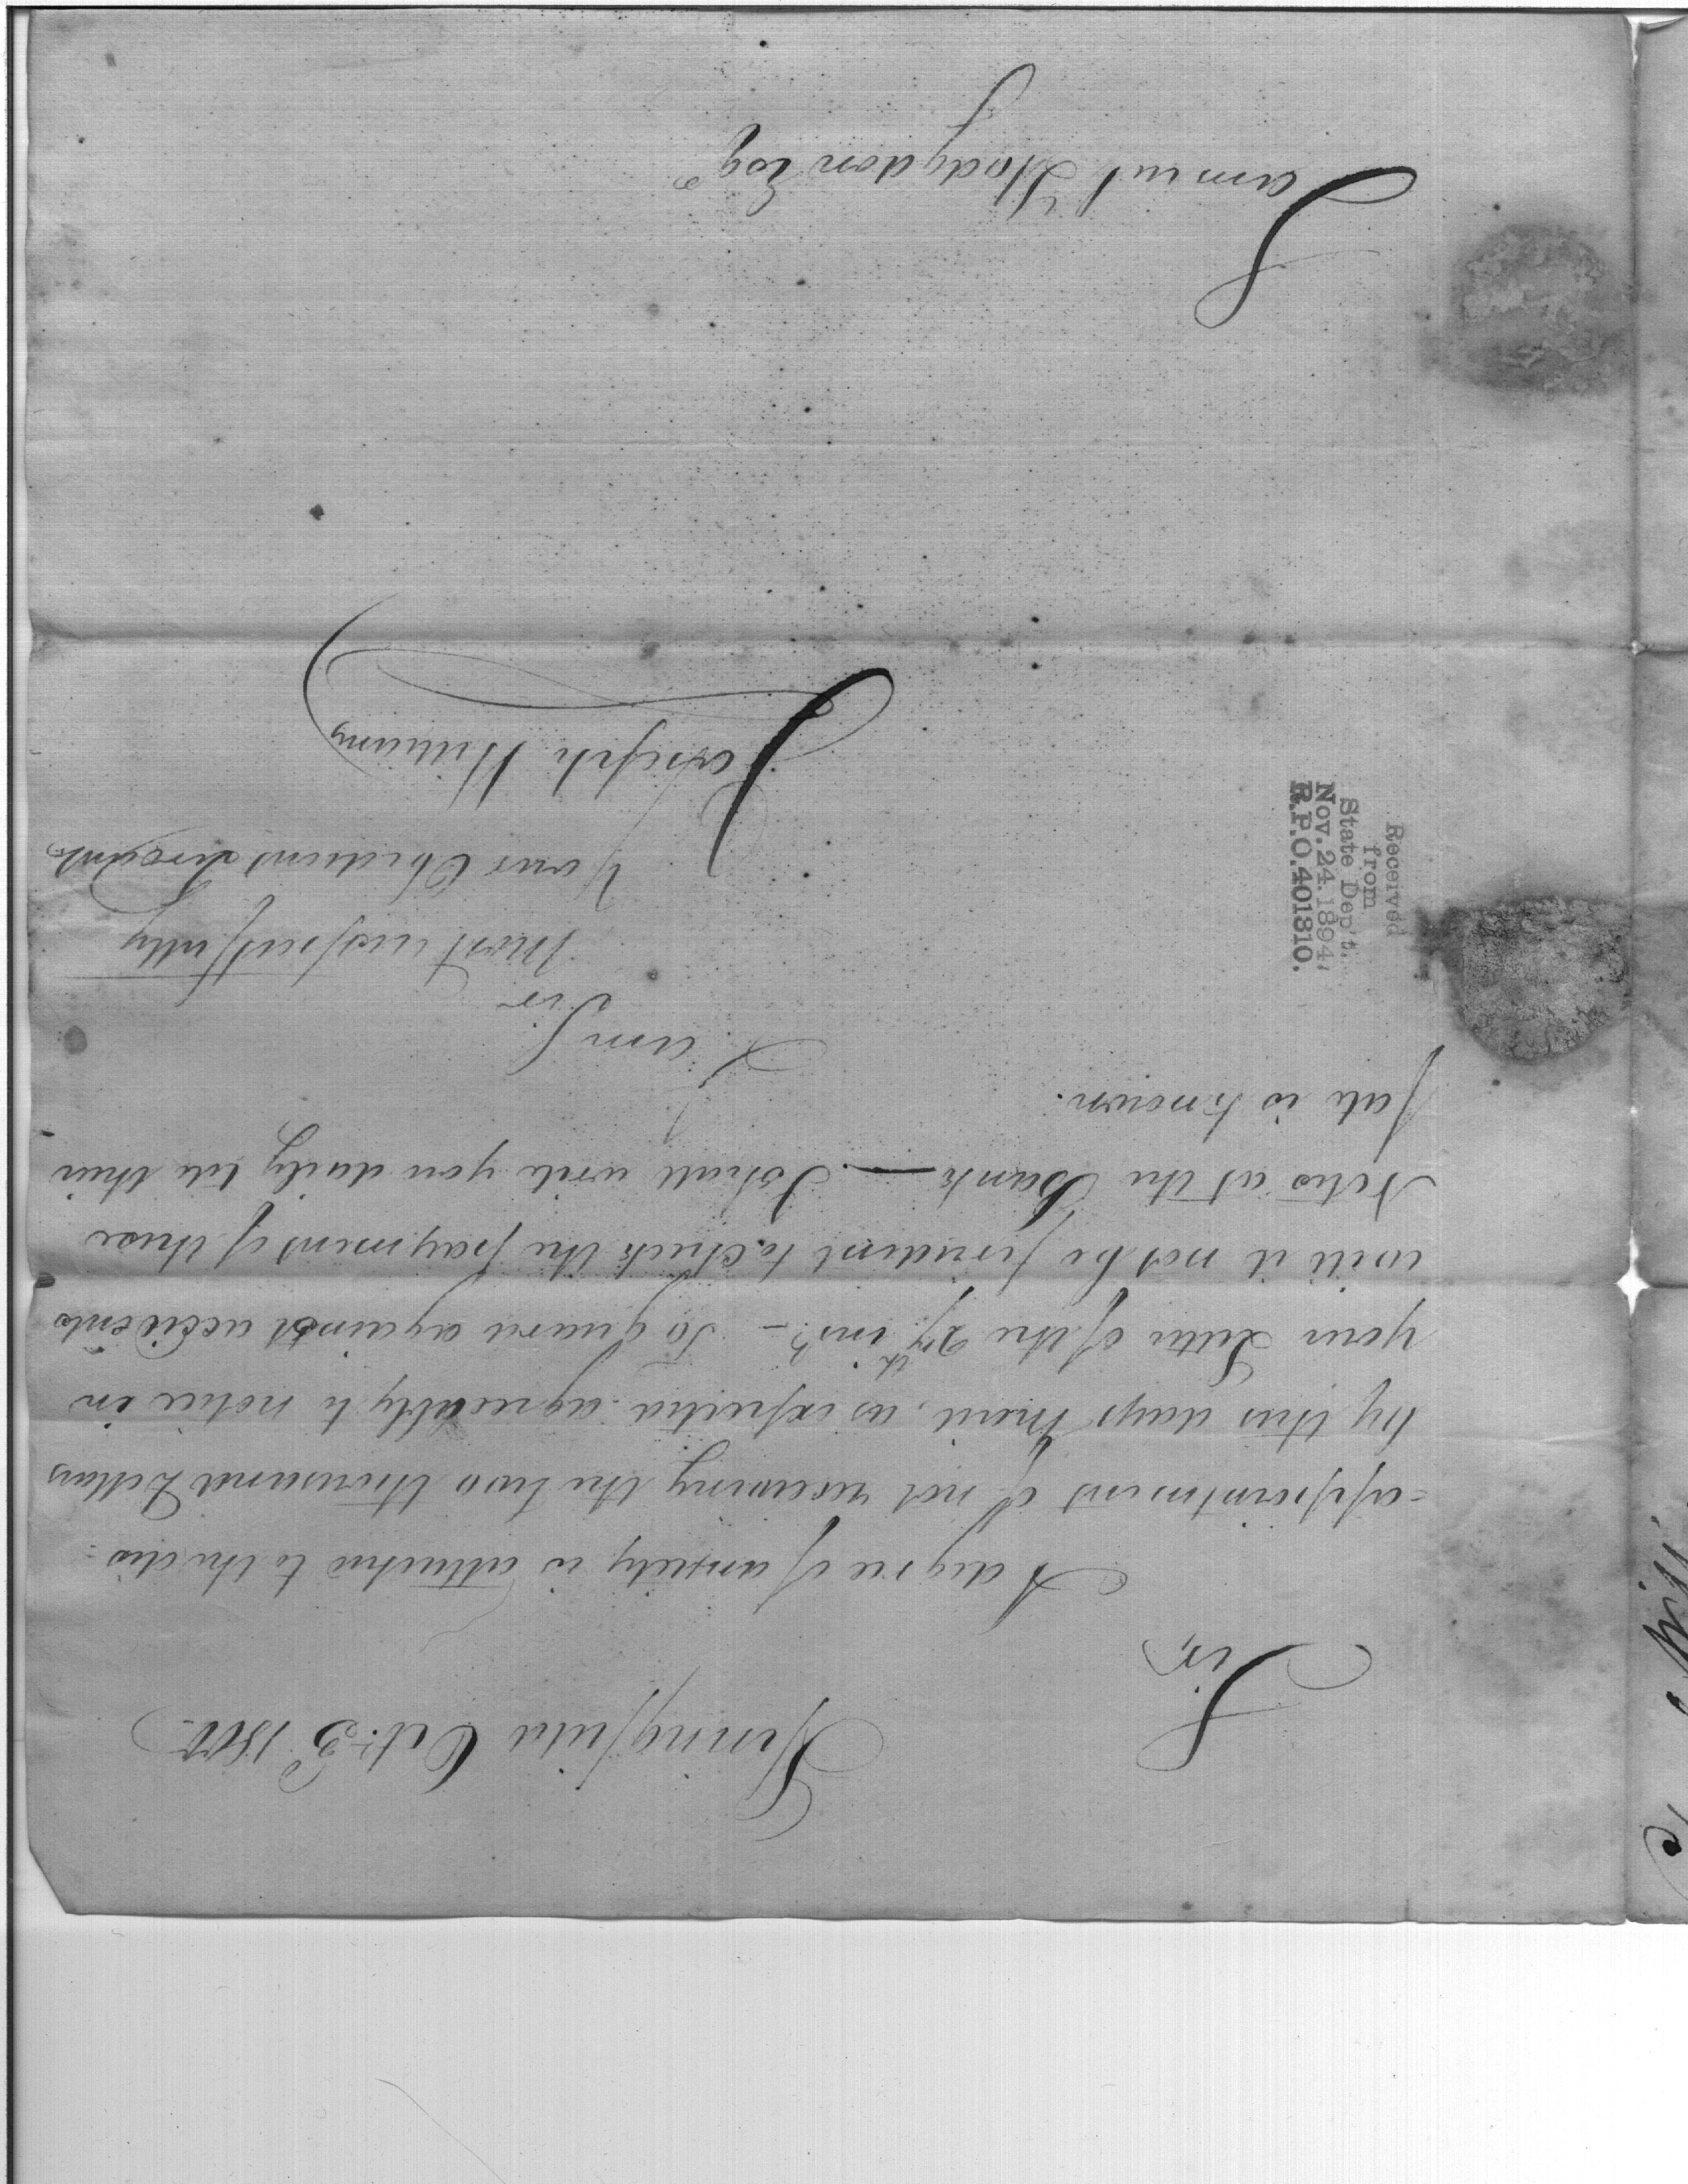 Springfield Oct: 3d 1800
Sir,
A degree of anxiety is attached to the dis=
=appointment of not receiving the two thousand Dollars
by this days Mail, as expected agreeably to notice in
your Letter of the 27th ins? - To guard against accidents
will it not be prudent to check the payment of those
Notes at the Bank — I shall write you daily till their
fate is known.
I am Sir
Sir
Most respectfully
Your Obedient Servant
Joseph Williams
Samuel Hodgdon Esqr
Received
from
State Dep't.
Nov. 24. 1894,
R.P.O. 401310.